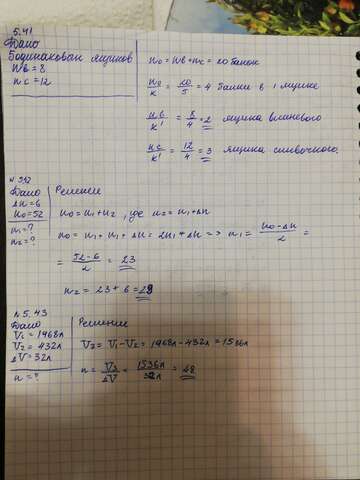 5.41
Дано
5 одинаковых ящиков
nв = 8
nс = 12
n₀ = nв + nс = 20 банок
n₀/k = 20/5 = 4 банки в 1 ящике
nв/k' = 8/4 = 2 ящика
nс/k' = 12/4 = 3 ящика сливочного.
N 5.42
Дано
Δn = 6
n₀ = 52
n₁ = ?
n₂ = ?
Решение
n₀ = n₁ + n₂, где n₂ = n₁ + Δn
n₀ = n₁ + n₁ + Δn = 2n₁ + Δn => n₁ = (n₀ - Δn)/2 =
= (52 - 6)/2 = 23
n₂ = 23 + 6 = 29
N 5.43
Дано
V₁ = 1968л
V₂ = 432л
ΔV = 32л
n = ?
Решение
V₃ = V₁ - V₂ = 1968л - 432л = 1536л
n = V₃/ΔV = 1536л/32л = 48